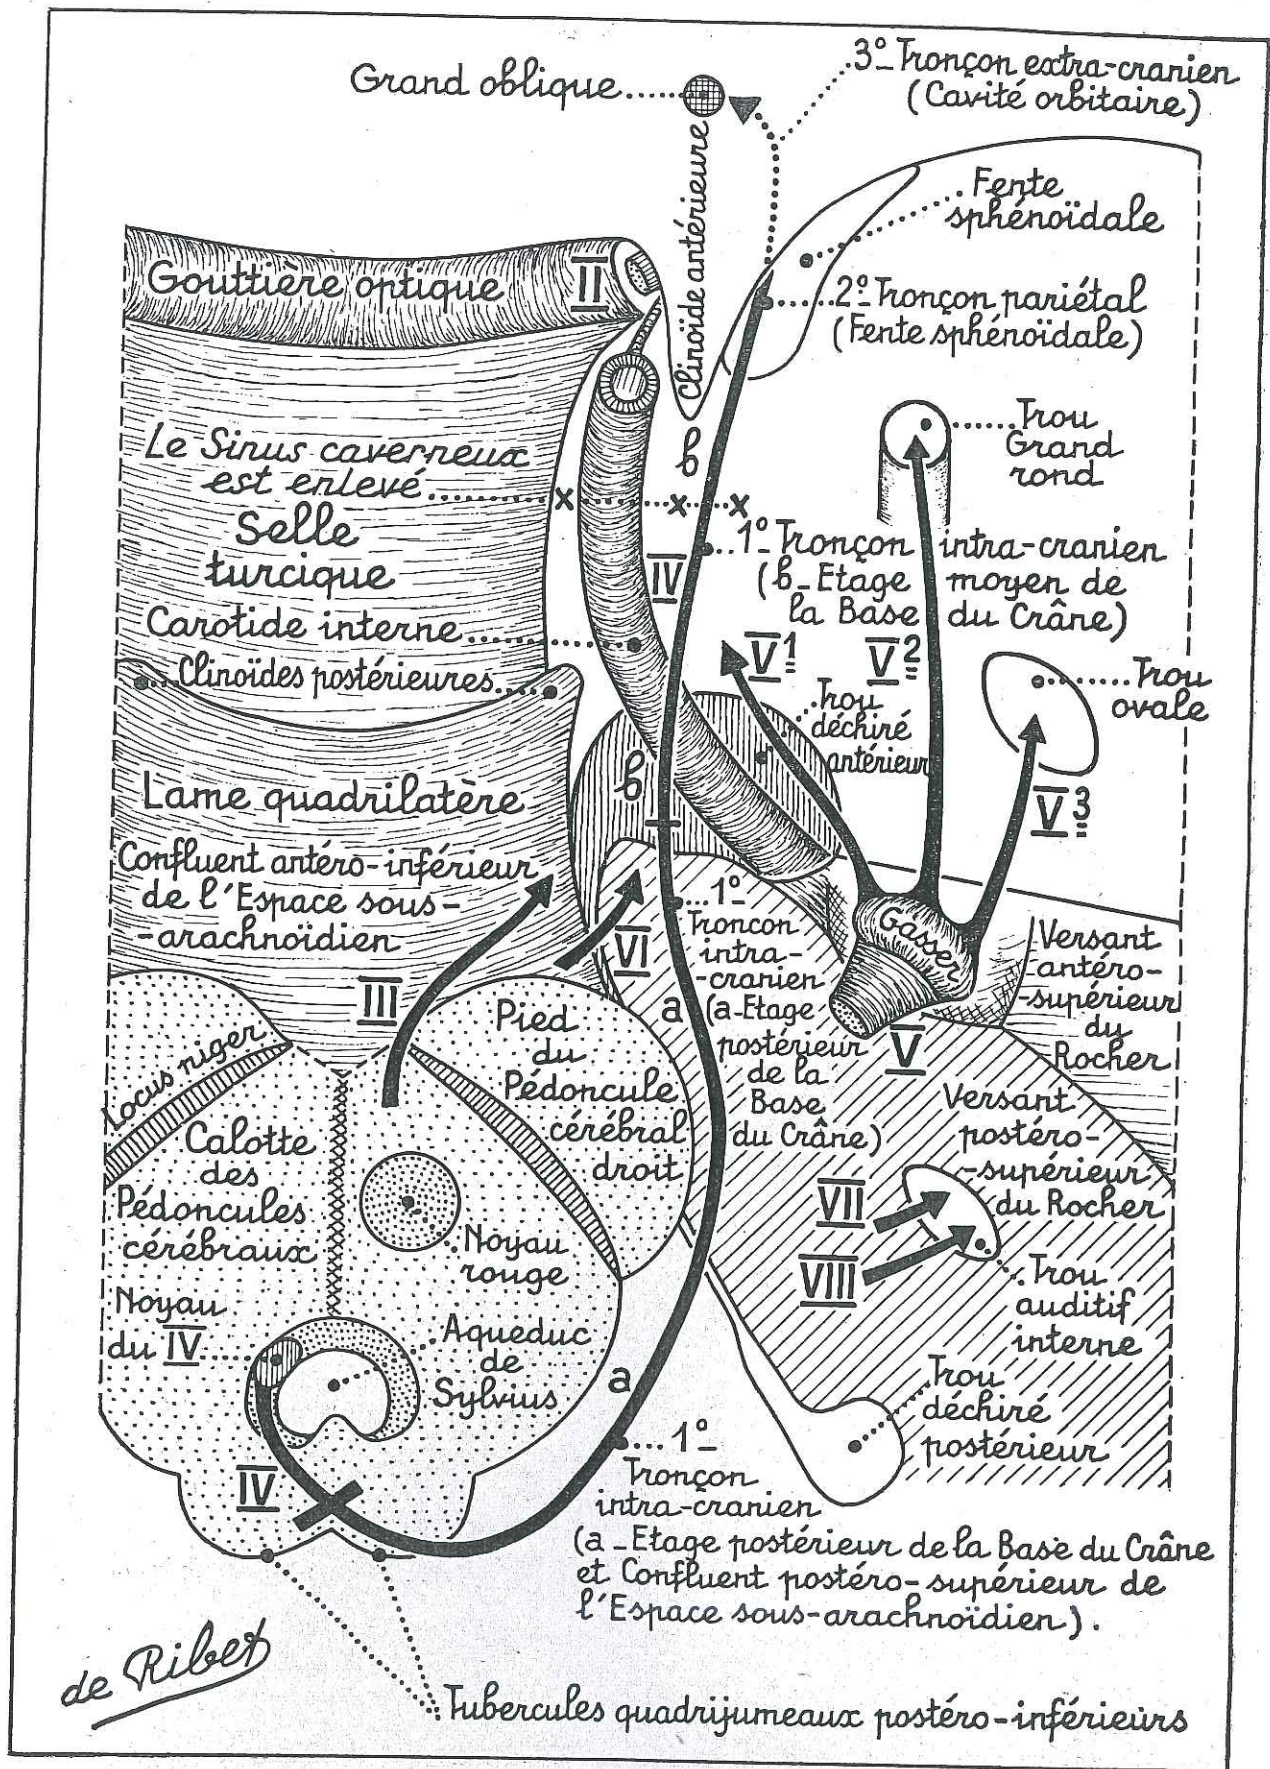 Grand oblique
3º_ Tronçon extra-cranien
(Cavité orbitaire)
Clinoïde antérieure
Fente
sphénoïdale
Gouttière optique
II
2º_ Tronçon pariétal
(Fente sphénoïdale)
Le Sinus caverneux
est enlevé
x
x
x
b
Trou
Grand
rond
Selle
turcique
IV
1º_ Tronçon intra-cranien
(b_ Etage moyen de
la Base du Crâne)
Carotide interne
Clinoïdes postérieures
V1
V2
Trou
ovale
Trou
déchiré
antérieur
b
V3
Lame quadrilatère
Confluent antéro-inférieur
de l'Espace sous-
-arachnoïdien
III
VI
1º_
Troncon
intra-
-cranien
(a-Etage
postérieur
de la
Base
du Crâne)
a
Gasser
V
Versant
antéro-
-supérieur
du
Rocher
Locus niger
Pied
du
Pédoncule
cérébral
droit
Calotte
des
Pédoncules
cérébraux
Noyau
rouge
Versant
postéro-
-supérieur
du Rocher
VII
VIII
Trou
auditif
interne
Noyau
du IV
Aqueduc
de
Sylvius
a
Trou
déchiré
postérieur
IV
1º_
Tronçon
intra-cranien
(a_Etage postérieur de la Base du Crâne
et Confluent postéro-supérieur de
l'Espace sous-arachnoïdien).
de Ribet
Tubercules quadrijumeaux postéro-inférieurs